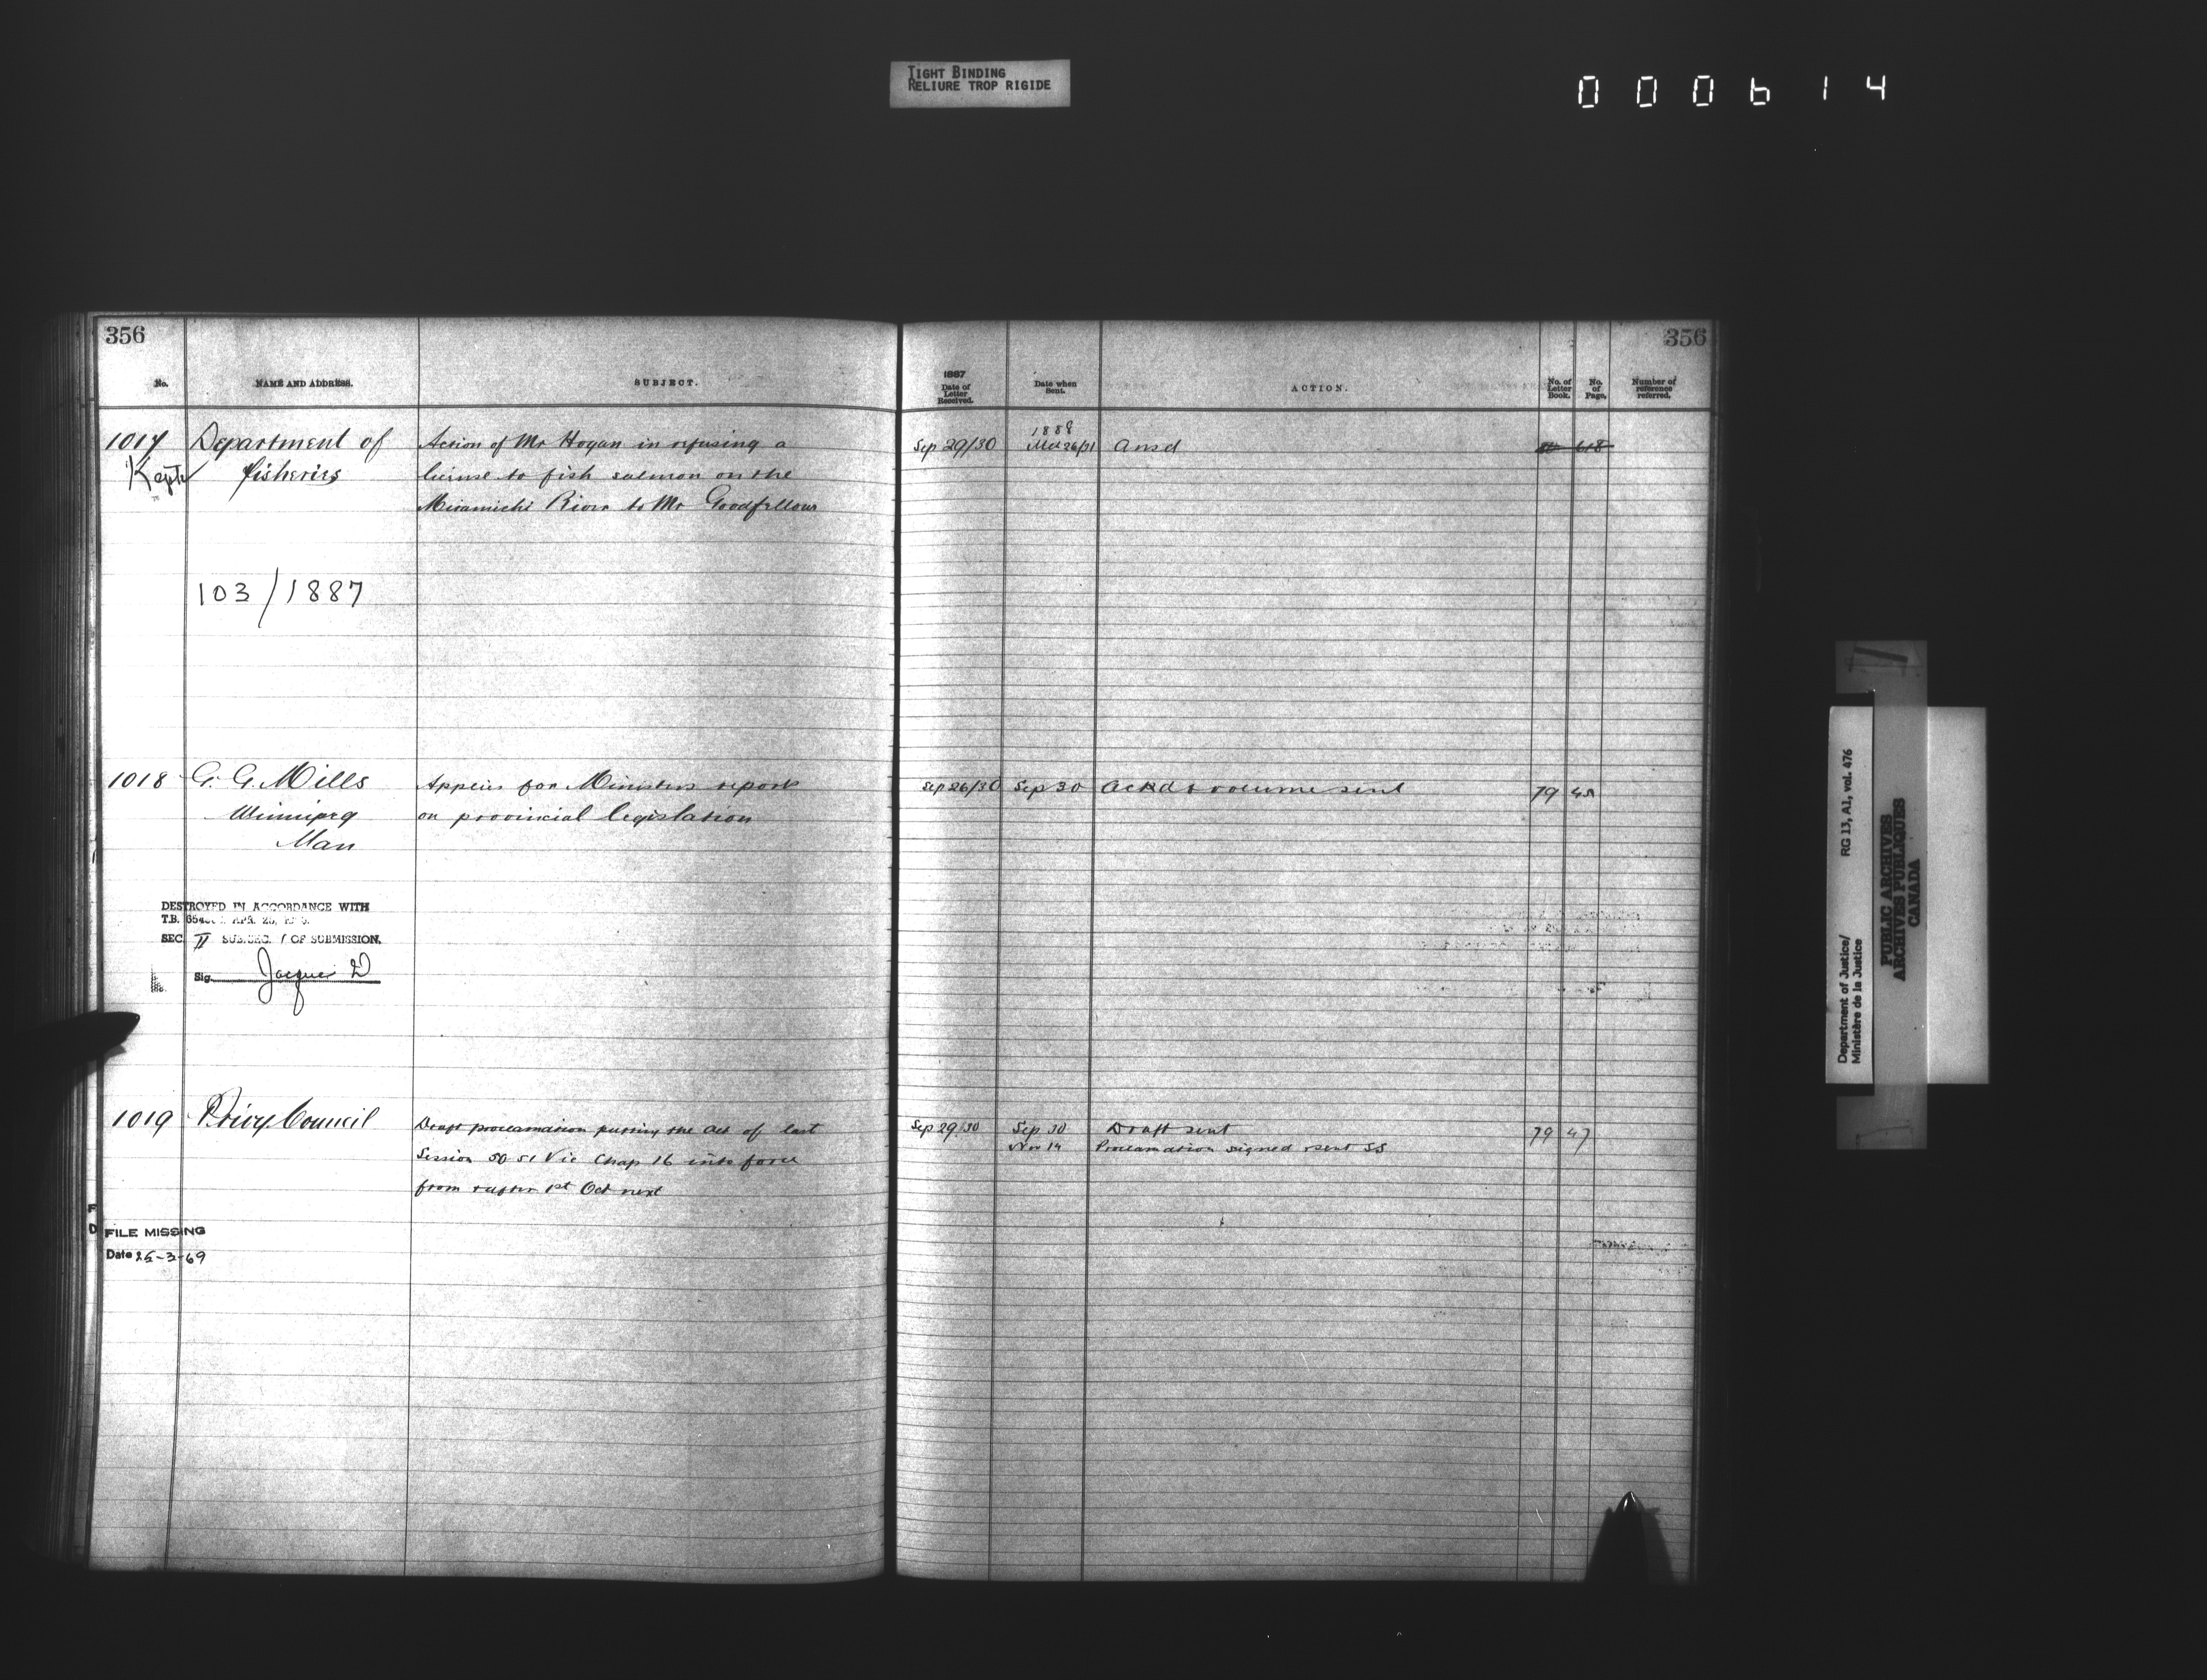 TIGHT BINDING
RELIURE TROP RIGIDE
000614
356
No.
NAME AND ADDRESS.
SUBJECT.
1017 Department of
Kept fisheries
Action of Mr Hogan in refusing a
license to fish salmon on the
Miramichi River to Mr Goodfellow
103/1887
1018 G. G. Mills
Winnipeg
Man
Applies for Ministers reports
on provincial legislation
DESTROYED IN ACCORDANCE WITH
T.B. APR. 25,
SEC. II SUB.SEC. 1 OF SUBMISSION.
Sig.
1019 Privy Council
Draft proclamation putting the Act of last
Session 50 51 Vic Chap 16 into force
from & after 1st Oct next
F
D
FILE MISSING
Date 25-3-69
356
1887
Date of
Letter
Received.
Date when
Sent.
ACTION.
No. of
Letter
Book.
No.
of
Page.
Number of
reference
referred.
1888
Sep 29/30 ansd 618
Sep 26/30 Sep 30 Ackd & volume sent 79
Sep 29/30 Sep 30 Draft sent 79 47
Nov 14 Proclamation signed & sent SS
Department of Justice/ RG 13, A1, vol. 476
Ministère de la Justice
PUBLIC ARCHIVES
ARCHIVES PUBLIQUES
CANADA